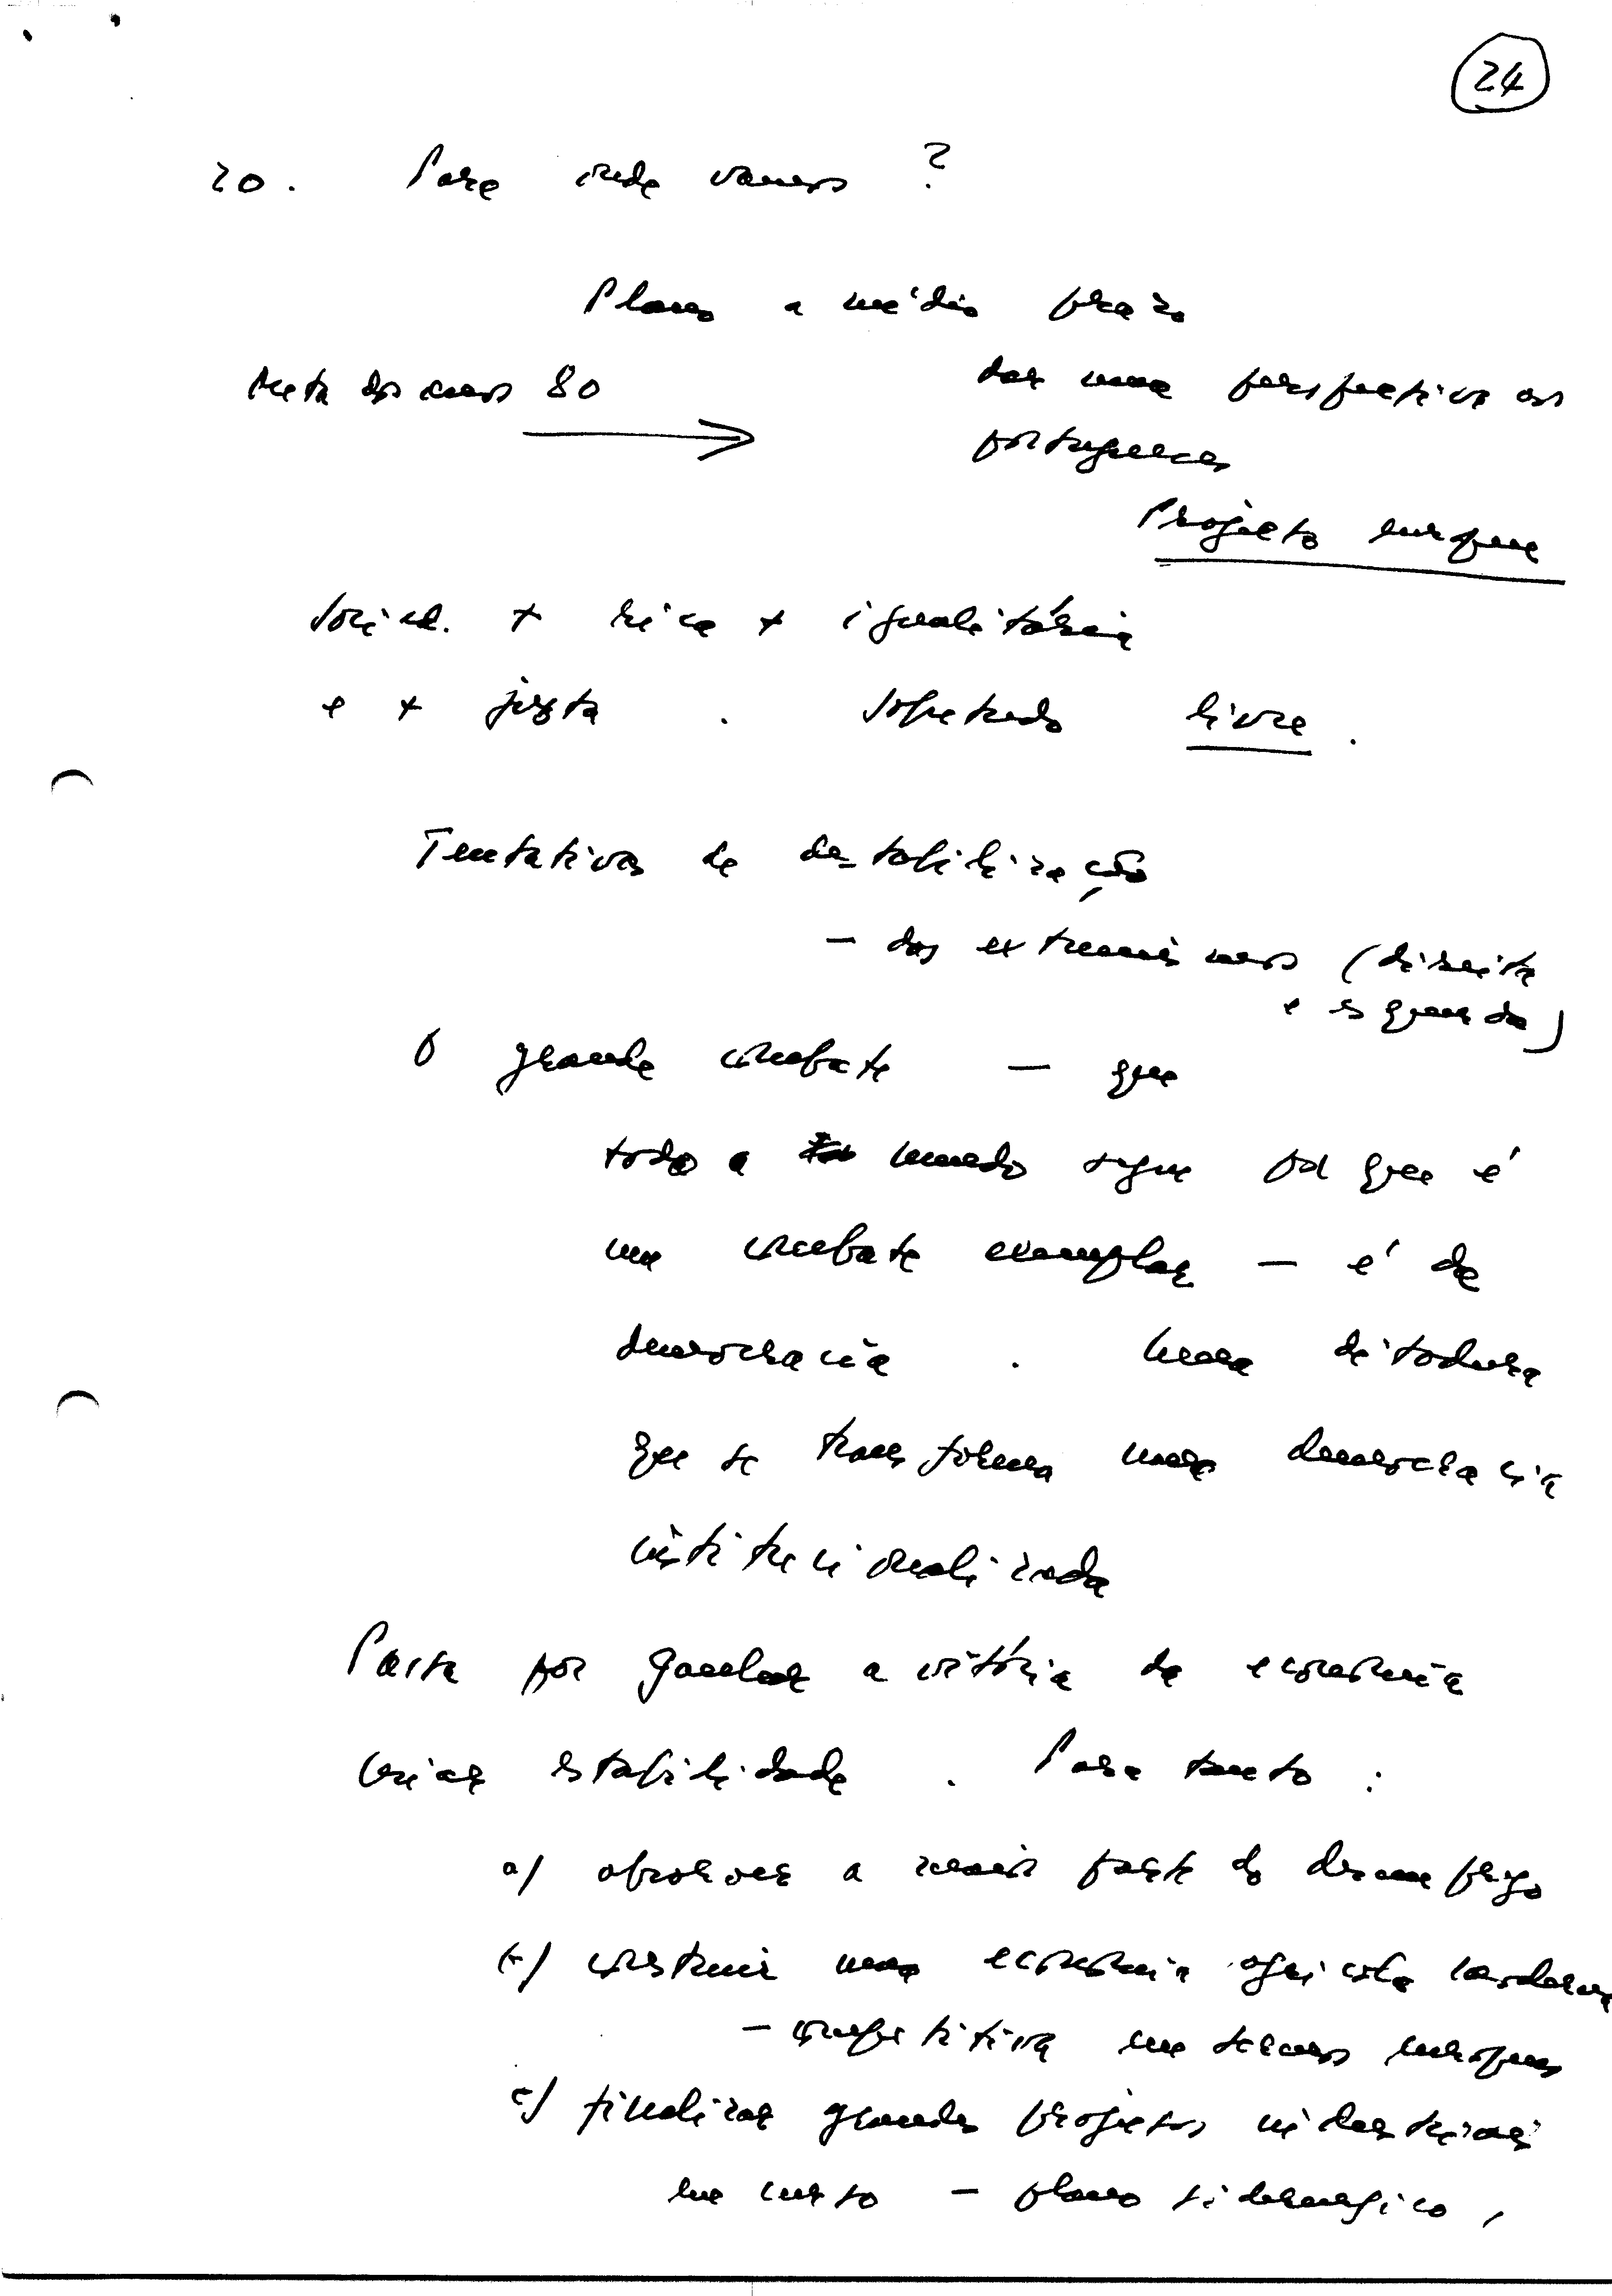 24
20. Para onde vamos ?
Plano a médio prazo
Meta dos anos 80
dar uma perspectiva aos
portugueses
Projecto europeu
socied. + rica + igualitária
e + justa . Sobretudo livre .
Tentativas de destabilização
- dos extremismos (direita
e esquerda)
O grande combate - que
todo o mundo segue por que é
um combate exemplar - é da
democracia . Uma ditadura
que se transforma numa democracia
institucionalizada
Passa por ganhar a vitória da economia
Criar estabilidade . Para tanto :
a) absorver a maior parte do desemprego
b) construir uma economia agrícola moderna
- competitiva em termos europeus
c) finalizar grandes projectos industriais
em curso - plano siderurgico,